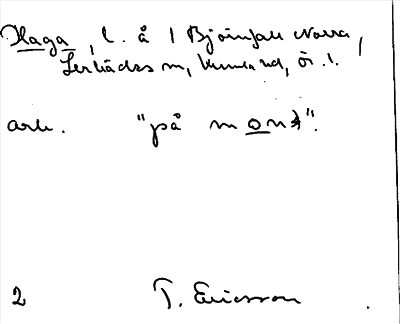 Haga, l. å 1 Björnfall Norra,
Lerbäcks sn, Kumla hd, Ör. l.
ark. "på mon".
2 T. Ericsson